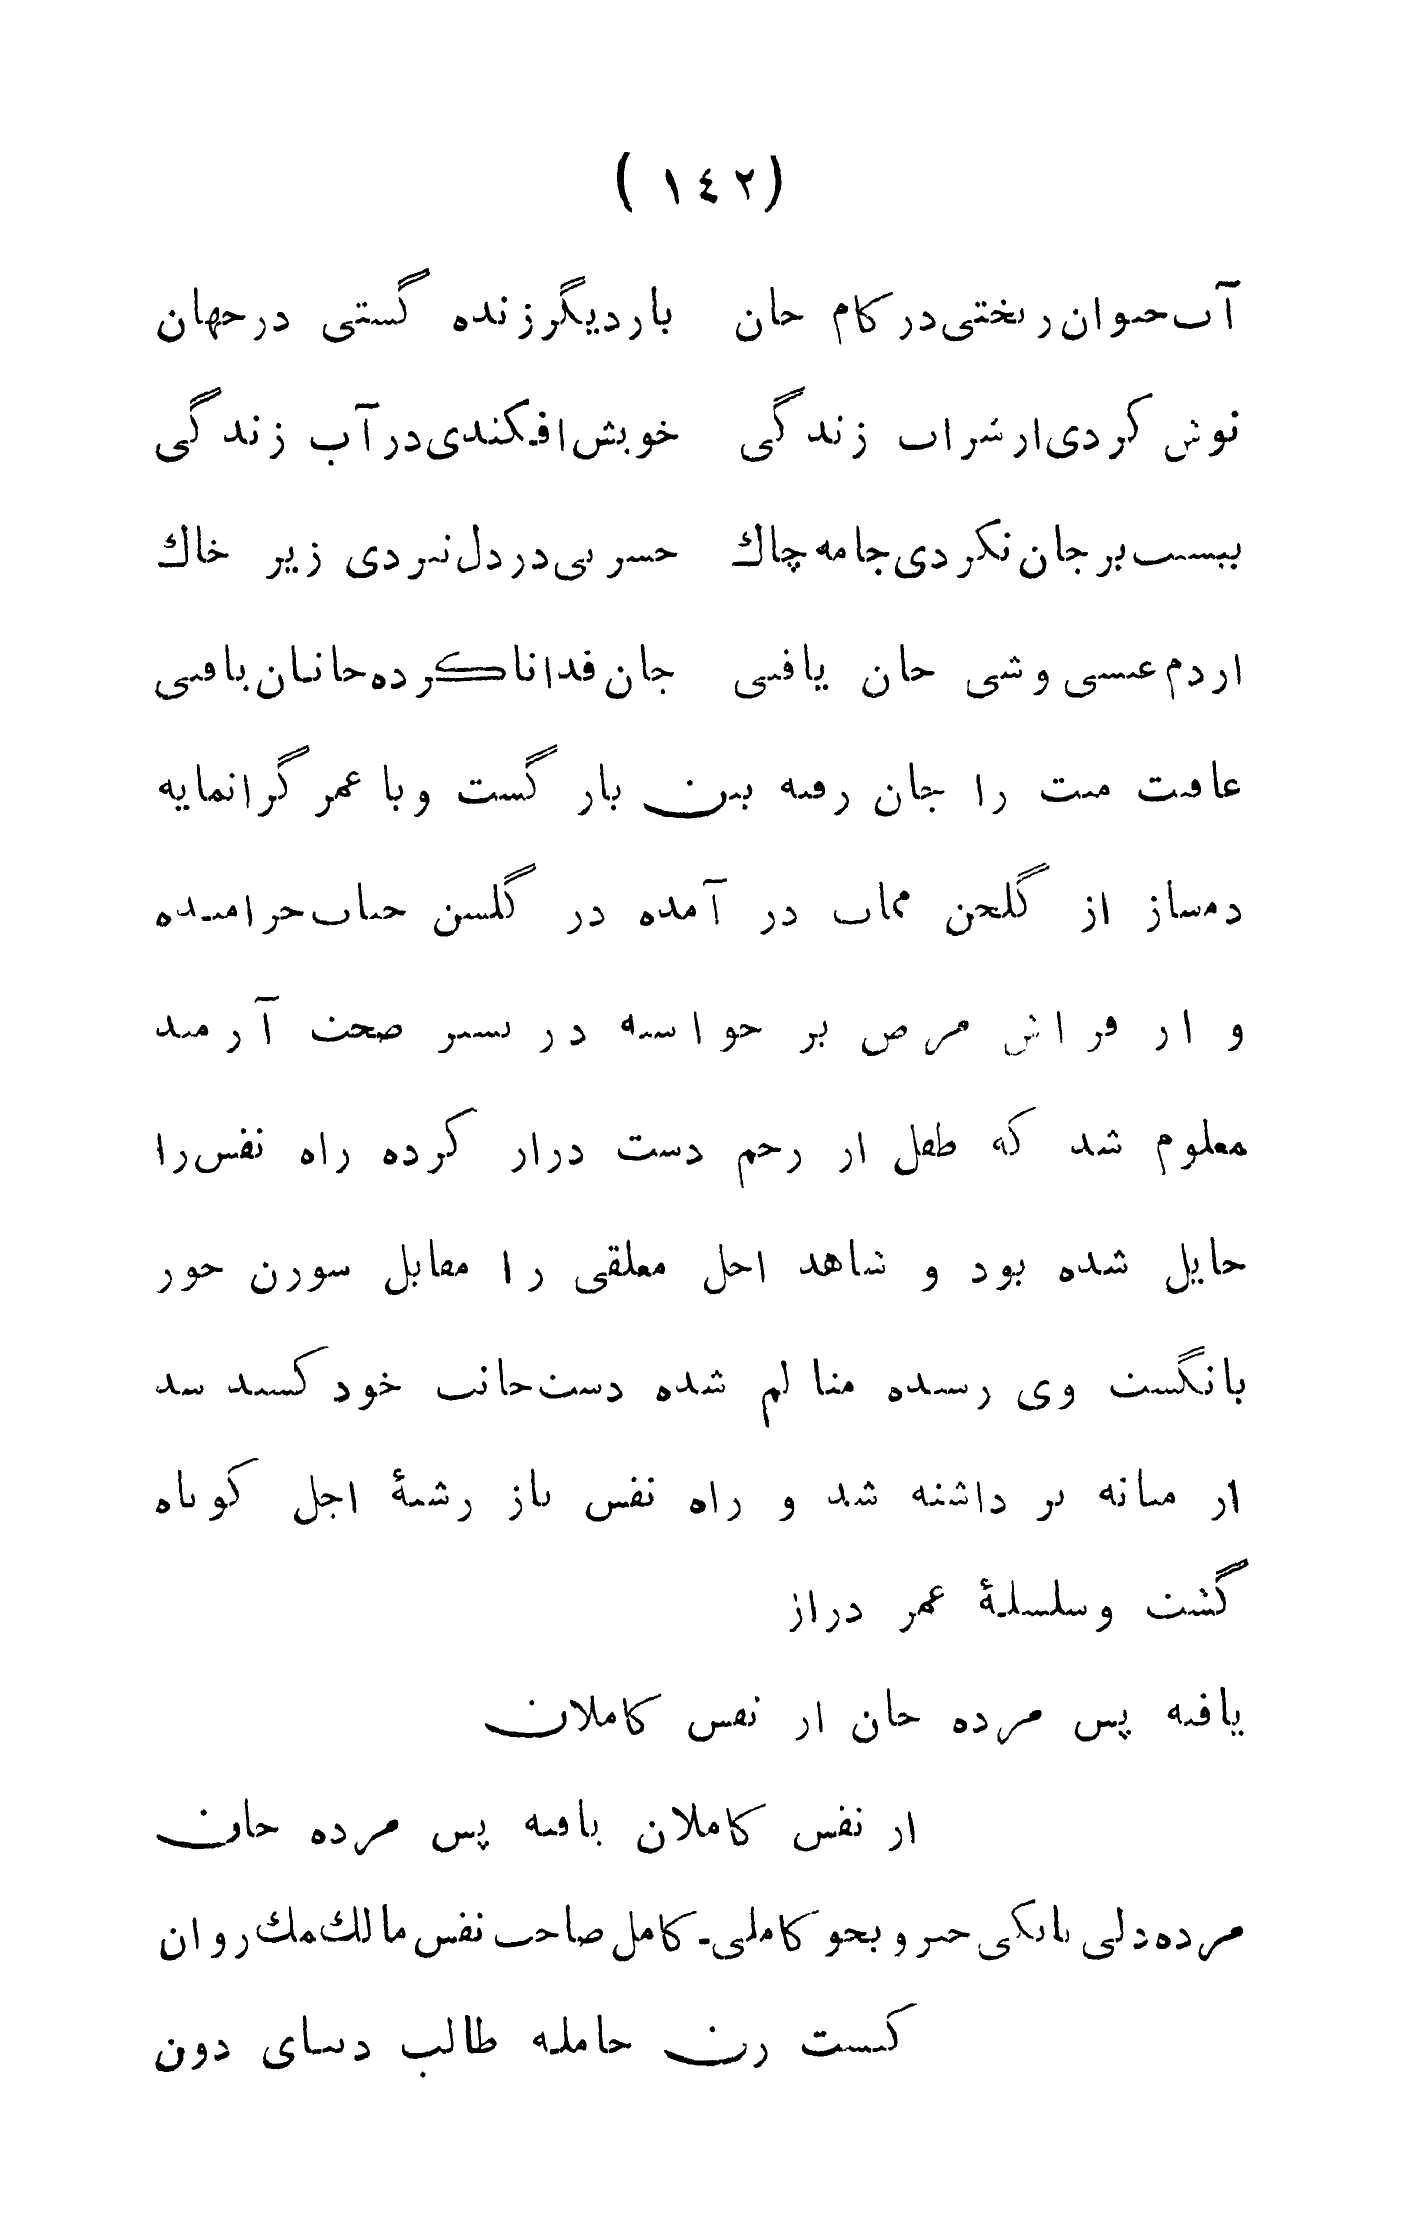 (١٤٢)
آب حیوان ریختی در کام جان بار دیگر زنده گشتی در جهان
نوش کردی از شراب زندگی خویش افکندی در آب زندگی
نیست بر جان نکردی جامه چاك حسرتی در دل نبردی زیر خاك
از دم عیسی وشی جان یافتی جان فدا ناکرده جانان یافتی
عاقبت میت را جان رفته بتن باز گشت و با عمر گرانمایه
دمساز از گلخن ممات در آمده در گلشن حیات خرامیده
و از فراش مرض بر خواسته در بستر صحت آرمید
معلوم شد که طفل از رحم دست دراز کرده راه نفس را
حایل شده بود و شاهد اجل معلقی را مقابل سوزن خور
بانگشت وی رسیده متالم شده دست جانب خود کشید سد
از میانه بر داشته شد و راه نفس باز رشتهٔ اجل کوتاه
گشت و سلسلهٔ عمر دراز
یافته پس مرده جان از نفس کاملان
از نفس کاملان یافته پس مرده جان
مرده دلی بانکی خیز و بجو کاملی- کامل صاحب نفس مالك ملك روان
کیست زن حامله طالب دنیای دون